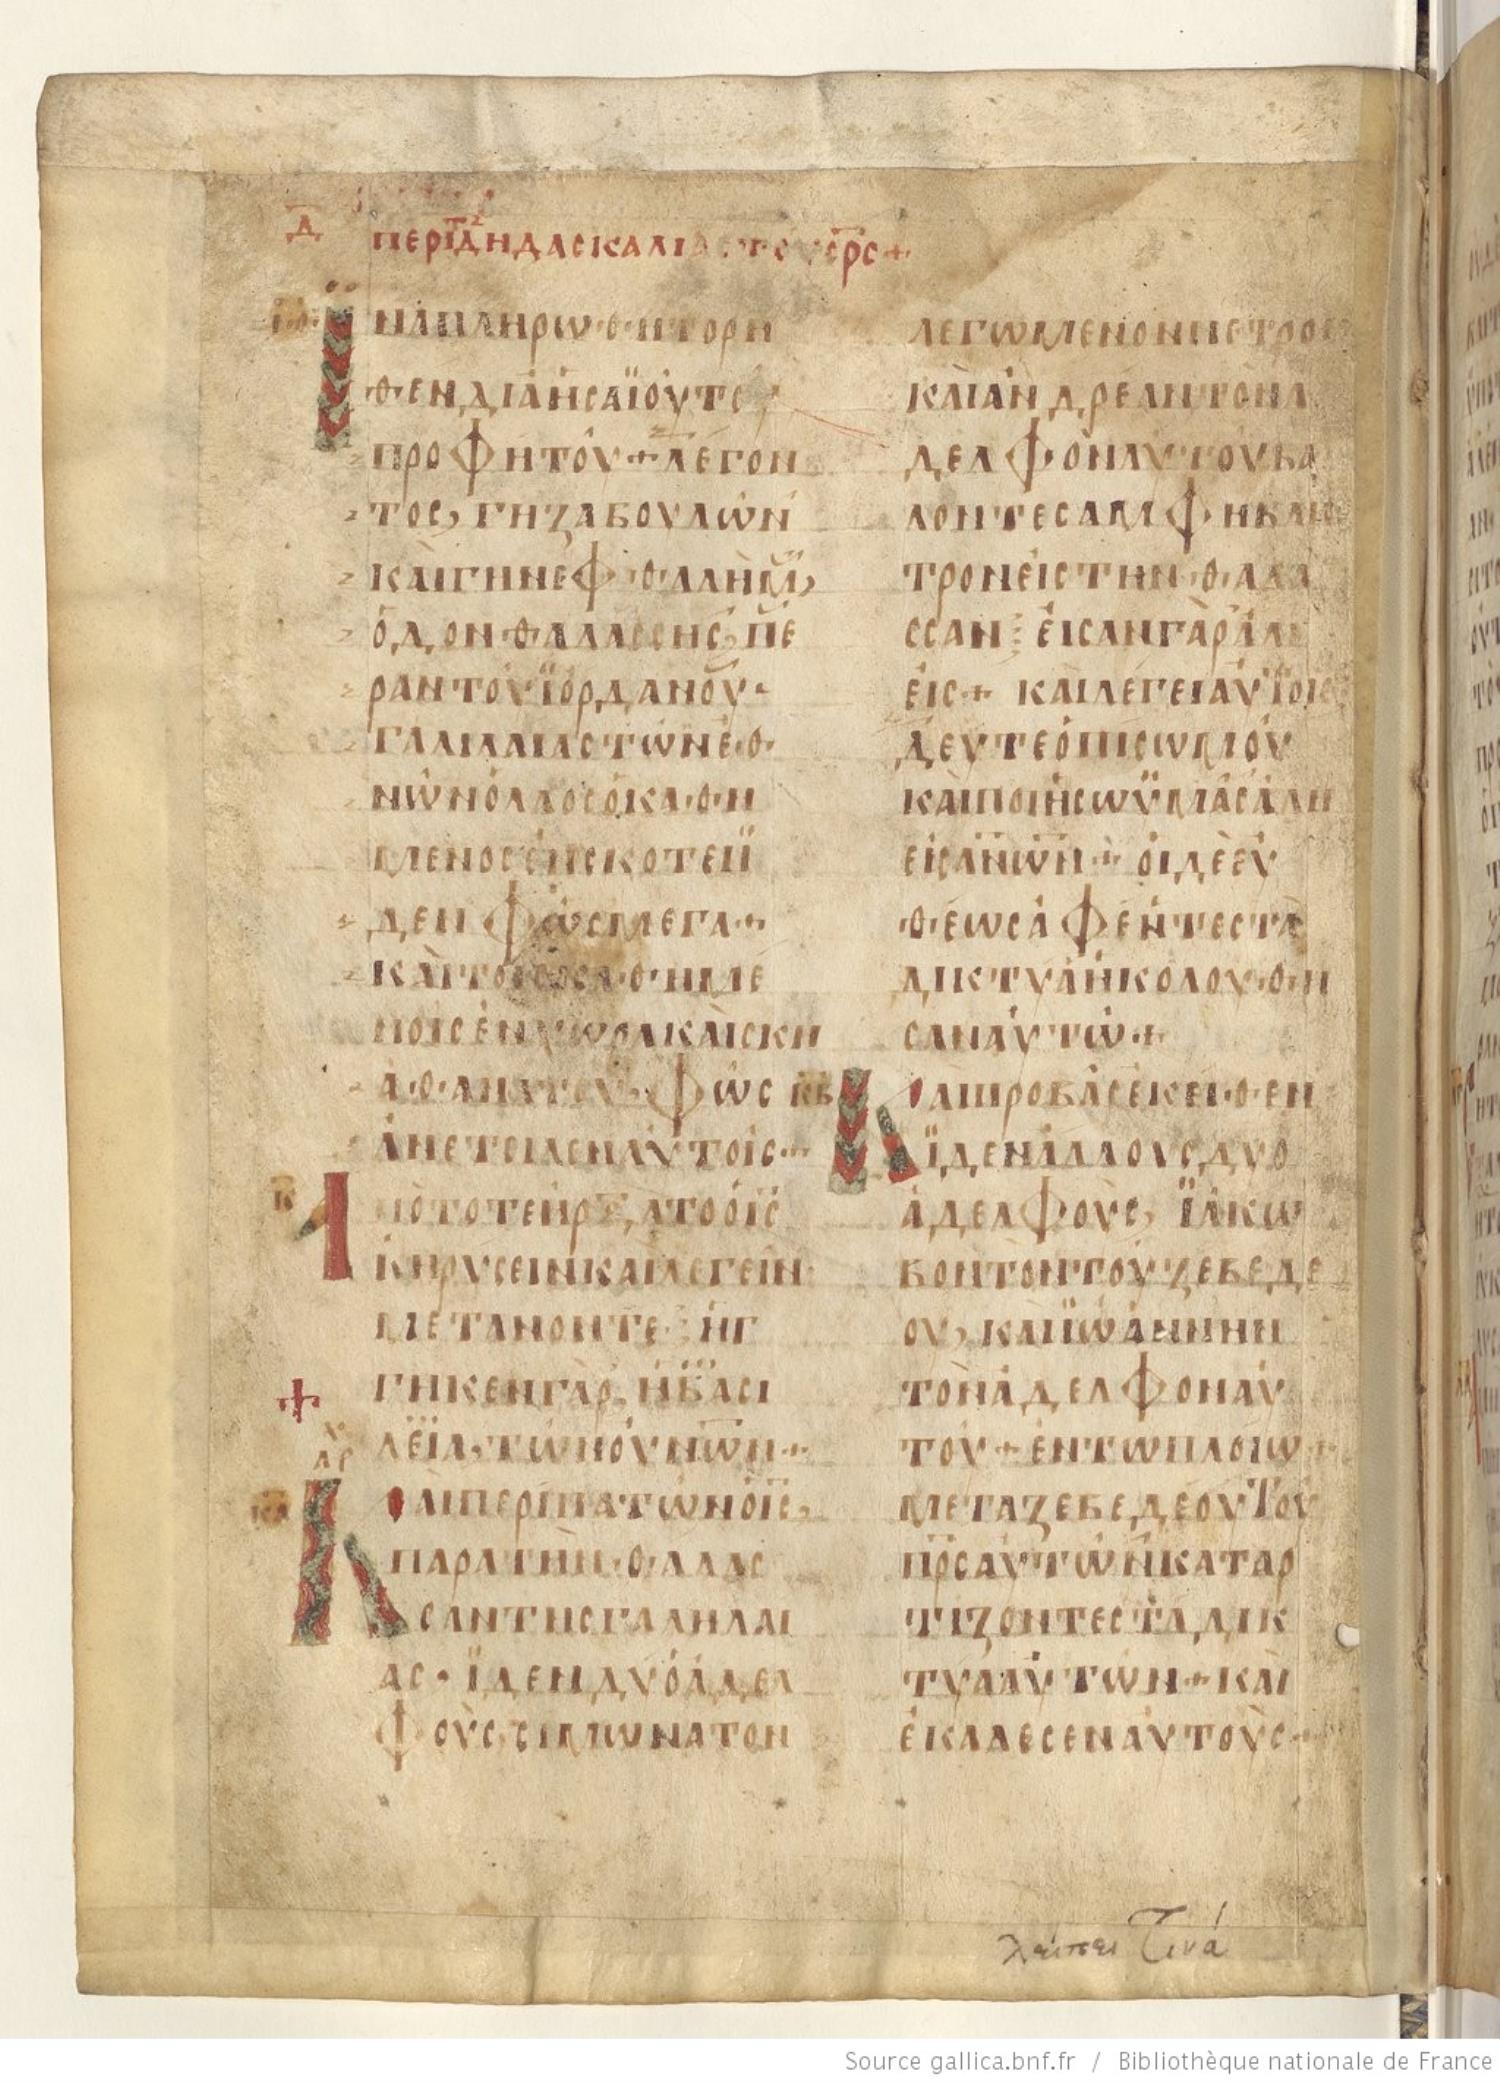 Δ ΠΕΡΙ ΤΗϹ ΔΗΔΑϹΚΑΛΙΑϹ ΤΟΥ ϹΡϹ +
ΙΝΑ ΠΛΗΡΩΘΗ ΤΟ ΡΗ
ΘΕΝ ΔΙΑ ΗϹΑΪΟΥ ΤΟΥ
ΠΡΟΦΗΤΟΥ + ΛΕΓΟΝ
ΤΟϹ, ΓΗ ΖΑΒΟΥΛΩΝ
ΚΑΙ ΓΗ ΝΕΦΘΑΛΗΜ,
ΟΔΟΝ ΘΑΛΑϹϹΗϹ, ΠΕ
ΡΑΝ ΤΟΥ ΪΟΡΔΑΝΟΥ
ΓΑΛΙΛΑΙΑϹ ΤΩΝ ΕΘ
ΝΩΝ Ο ΛΑΟϹ Ο ΚΑΘΗ
ΜΕΝΟϹ ΕΝ ϹΚΟΤΕΙ Ϊ
ΔΕΝ ΦΩϹ ΜΕΓΑ +
ΚΑΙ ΤΟΙϹ ΚΑΘΗΜΕ
ΝΟΙϹ ΕΝ ΧΩΡΑ ΚΑΙ ϹΚΗ
Α ΘΑΝΑΤΟΥ ΦΩϹ
ΑΝΕΤΕΙΛΕΝ ΑΥΤΟΙϹ +
Κ ΑΠΟ ΤΟΤΕ ΗΡΞΑΤΟ Ο ΙϹ
ΚΗΡΥϹΕΙΝ ΚΑΙ ΛΕΓΕΙΝ
ΜΕΤΑΝΟΗΤΕ ΗΓ
ΓΗΚΕΝ ΓΑΡ Η ΒΑϹΙ
ΛΕΙΑ ΤΩΝ ΟΥΝΩΝ +
ΚΑ ΚΑΙ ΠΕΡΙΠΑΤΩΝ Ο ΙϹ,
ΠΑΡΑ ΤΗΝ ΘΑΛΑϹ
ϹΑΝ ΤΗϹ ΓΑΛΗΛΑΙ
ΑϹ · ΪΔΕΝ ΔΥΟ ΑΔΕΛ
ΦΟΥϹ, ϹΙΜΩΝΑ ΤΟΝ
ΛΕΓΩΜΕΝΟΝ ΠΕΤΡΟΝ
ΚΑΙ ΑΝΔΡΕΑΝ ΤΟΝ Α
ΔΕΛΦΟΝ ΑΥΤΟΥ ΒΑ
ΛΟΝΤΕϹ ΑΜΦΗΒΛΗϹ
ΤΡΟΝ ΕΙϹ ΤΗΝ ΘΑΛΑ
ϹϹΑΝ ΕΙϹΑΝ ΓΑΡ ΑΛΙ
ΕΙϹ + ΚΑΙ ΛΕΓΕΙ ΑΥΤΟΙϹ
ΔΕΥΤΕ ΟΠΙϹΩ ΜΟΥ
ΚΑΙ ΠΟΙΗϹΩ ΥΜΑϹ ΑΛΗ
ΕΙϹ ΑΝΩΝ + ΟΙ ΔΕ ΕΥ
ΘΕΩϹ ΑΦΕΝΤΕϹ ΤΑ
ΔΙΚΤΥΑ ΗΚΟΛΟΥΘΗ
ϹΑΝ ΑΥΤΩ +
ΚΒ ΚΑΙ ΠΡΟΒΑϹ ΕΚΕΙΘΕΝ
ΪΔΕΝ ΑΛΛΟΥϹ ΔΥΟ
ΑΔΕΛΦΟΥϹ, ΪΑΚΩ
ΒΟΝ ΤΟΝ ΤΟΥ ΖΕΒΕΔΕ
ΟΥ, ΚΑΙ ΪΩΑΝΝΗΝ
ΤΟΝ ΑΔΕΛΦΟΝ ΑΥ
ΤΟΥ + ΕΝ ΤΩ ΠΛΟΙΩ
ΜΕΤΑ ΖΕΒΕΔΕΟΥ ΤΟΥ
ΠΡϹ ΑΥΤΩΝ ΚΑΤΑΡ
ΤΙΖΟΝΤΕϹ ΤΑ ΔΙΚ
ΤΥΑ ΑΥΤΩΝ + ΚΑΙ
ΕΚΑΛΕϹΕΝ ΑΥΤΟΥϹ +
λείπει τινά
Source gallica.bnf.fr / Bibliothèque nationale de France